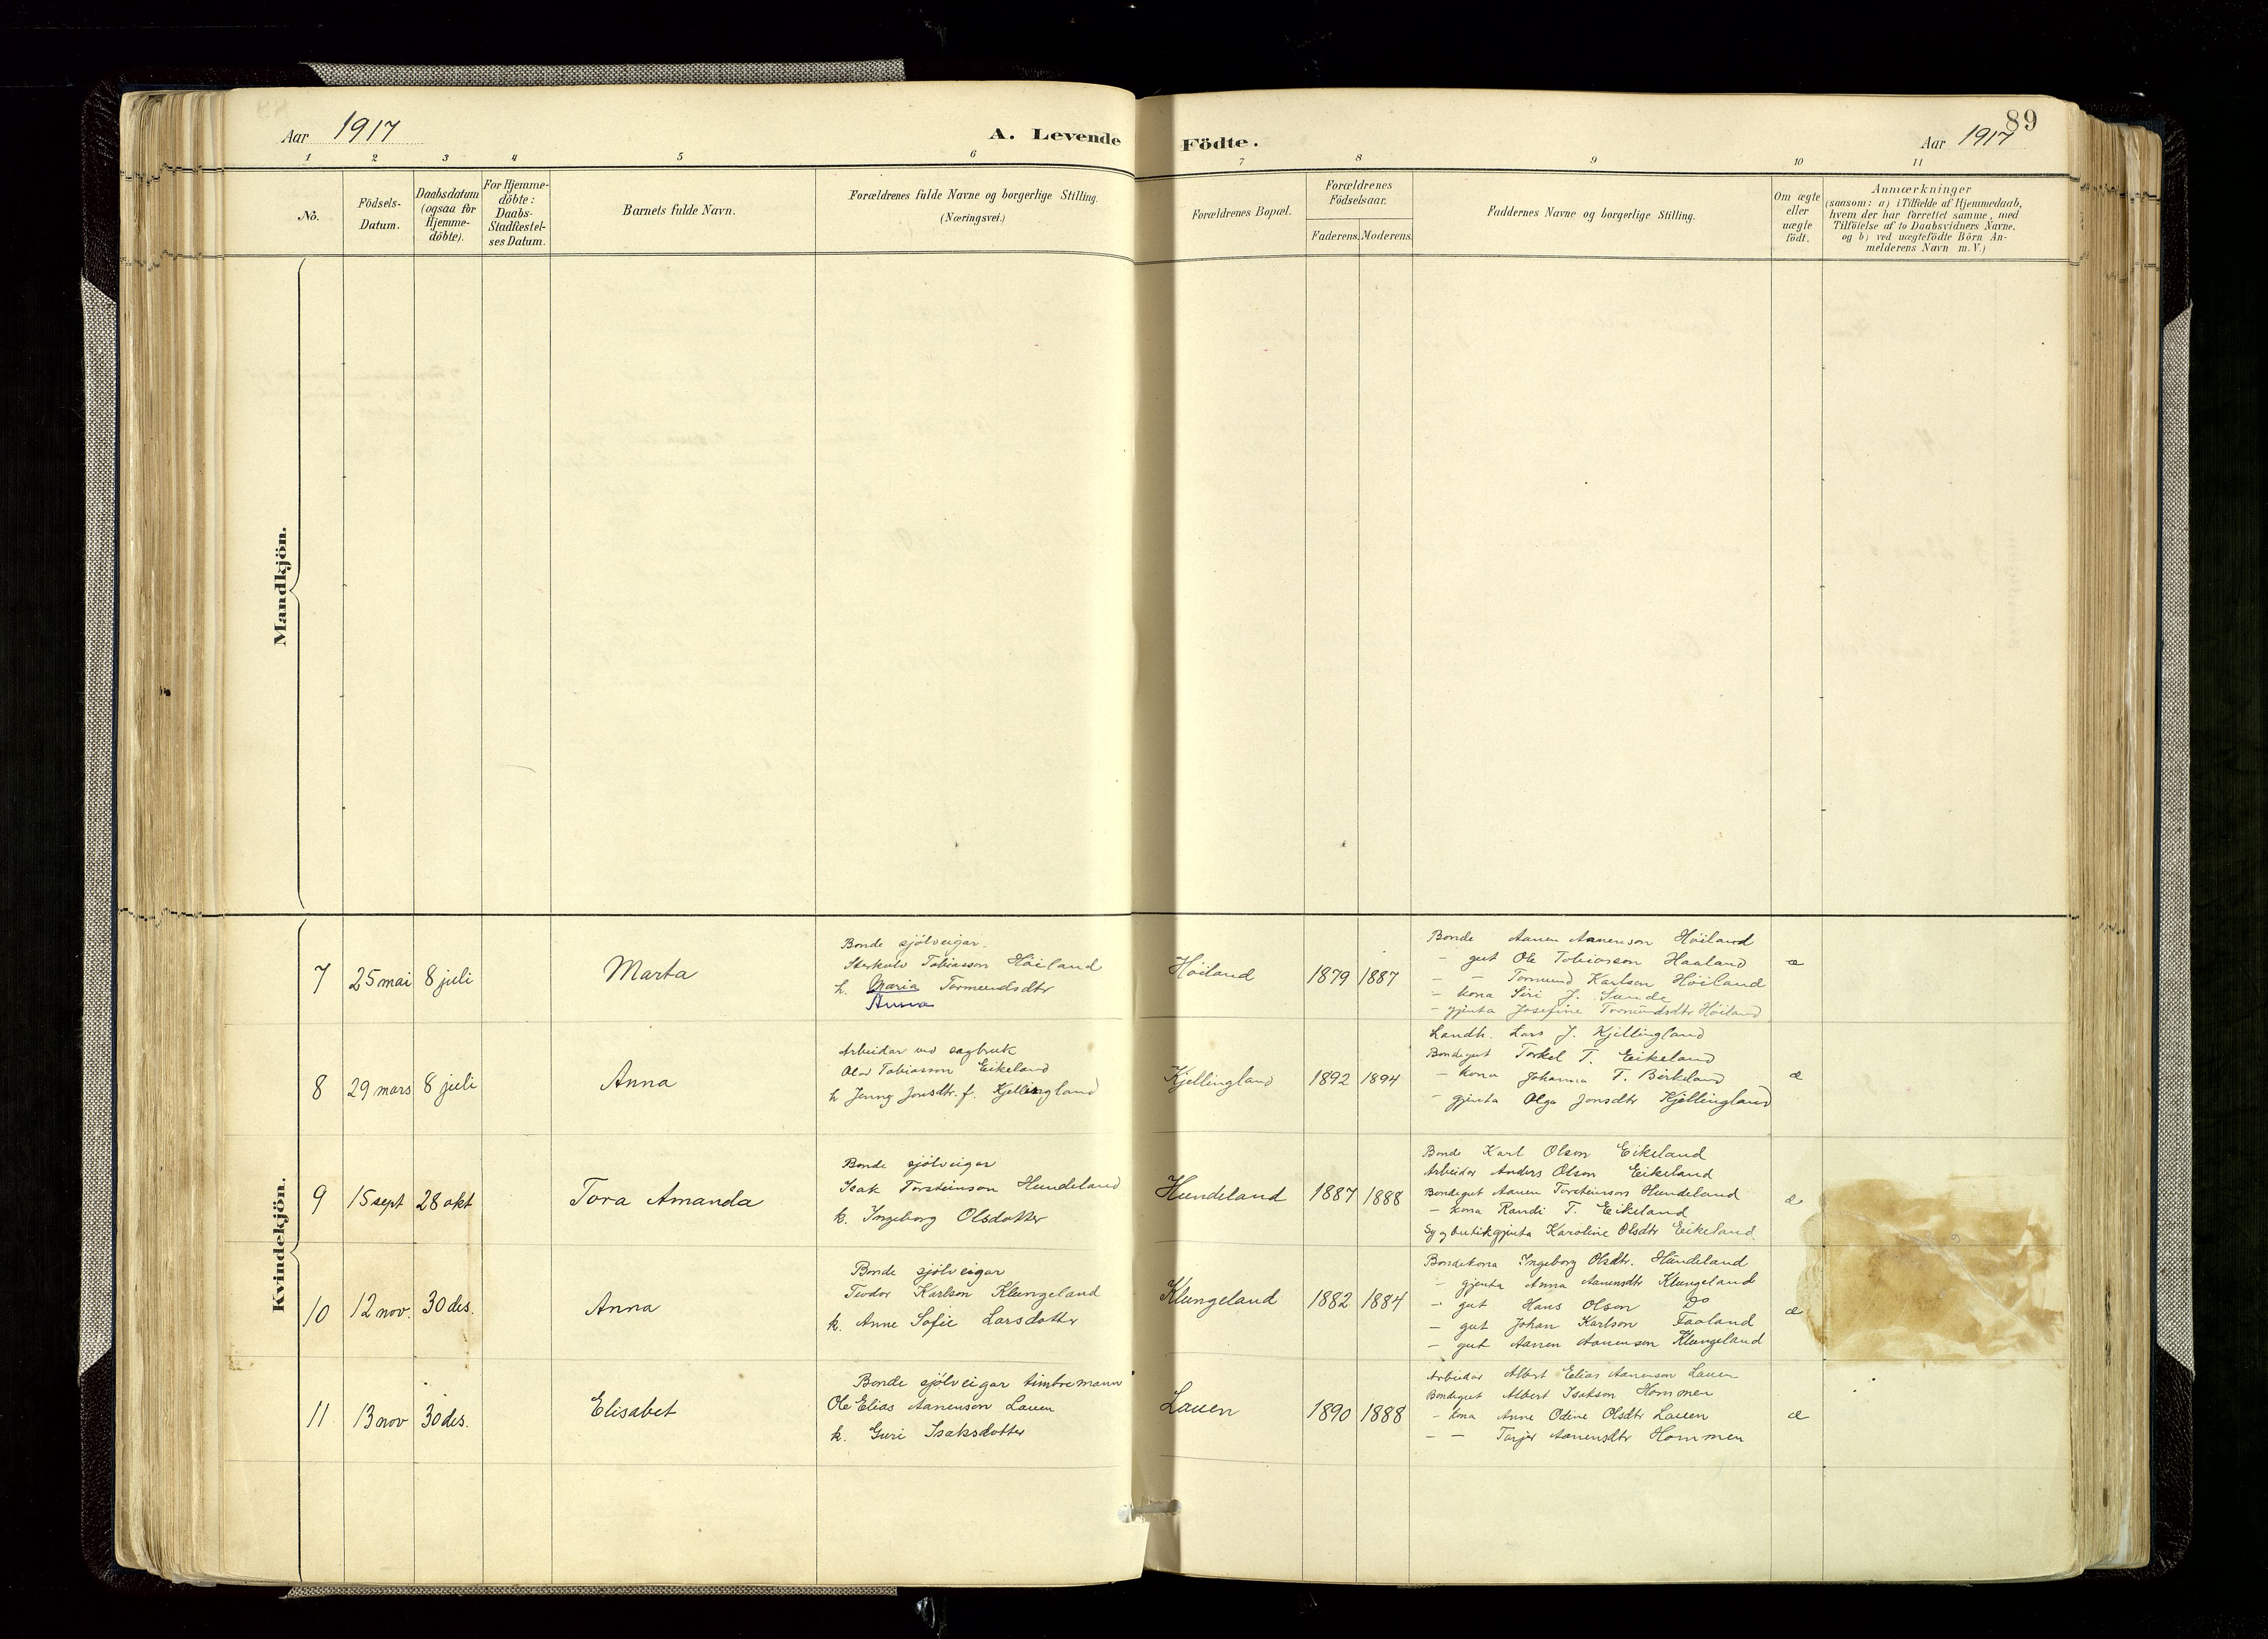 89
Aar 1917
A. Levende Födte.
Aar 1917
1 2 3 4 5 6 7 8 9 10 11
No.
Födsels-
Datum.
Daabsdatum
(ogsaa for
Hjemme-
döbte).
For Hjemme-
döbte:
Daabs-
Stadfæstel-
ses Datum.
Barnets fulde Navn.
Forældrenes fulde Navne og borgerlige Stilling.
(Næringsvei.)
Forældrenes Bopæl.
Forældrenes
Födselsaar.
Faderens. Moderens.
Faddernes Navne og borgerlige Stilling.
Om ægte
eller
uægte
födt.
Anmærkninger
(saasom: a) i Tilfælde af Hjemmedaab,
hvem der har forrettet samme, med
Tilföielse af to Daabsvidners Navne.
og b) ved uægtefödte Börn An-
melderens Navn m. V.)
Mandkjön.
Kvindekjön.
7 25 mai 8 juli Marta
Bonde sjölveigar.
Sterkulv Tobiasson Höiland
h. Maria Tormundsdtr
Anna
Höiland 1879 1887
Bonde Aanen Aanenson Höiland
- gut Ole Tobiasson Haaland æ
- - Tormund Karlson Höiland
- kona Siri J. Sunde
- gjenta Josefine Tormundsdtr Höiland
8 29 mars 8 juli Anna
Arbeidar ved sagbruk
Olav Tobiasson Eikeland
h Jenny Jonsdtr. f. Kjellingland
Kjellingland 1892 1894
Landh. Lars J. Kjellingland
Bondegut Torkel T. Eikeland
- kona Johanna T. Birkeland æ
- gjenta Olga Jonsdtr Kjellingland
9 15 sept 28 okt Tora Amanda
Bonde sjölveigar
Isak Torsteinson Hundeland
k. Ingeborg Olsdotter
Hundeland 1887 1888
Bonde Karl Olson Eikeland
Arbeidar Anders Olson Eikeland
Bondegut Aanen Torsteinson Hundeland æ
- kona Randi T. Eikeland
Sygbutikgjenta Karoline Olsdtr Eikeland
10 12 nov. 30 des. Anna
Bonde sjölveigar
Teodor Karlson Klungeland
k. Anne Sofie Larsdotter
Klungeland 1882 1884
Bondekona Ingeborg Olsdtr. Hundeland
- gjenta Anna Aanensdtr Klungeland
- gut Hans Olson Do æ
- gut Johan Karlson Faaland
- gut Aanen Aanenson Klungeland
11 13 nov 30 des. Elisabet
Bonde sjölveigar timbremann
Ole Elias Aanenson Lauen
k. Guri Isaksdotter
Lauen 1890 1888
Arbeidar Albert Elias Aanenson Lauen
Bondegut Albert Isakson Hommen
- kona Anne Odine Olsdtr Lauen æ
- - Tarjer Aanensdtr Hommen